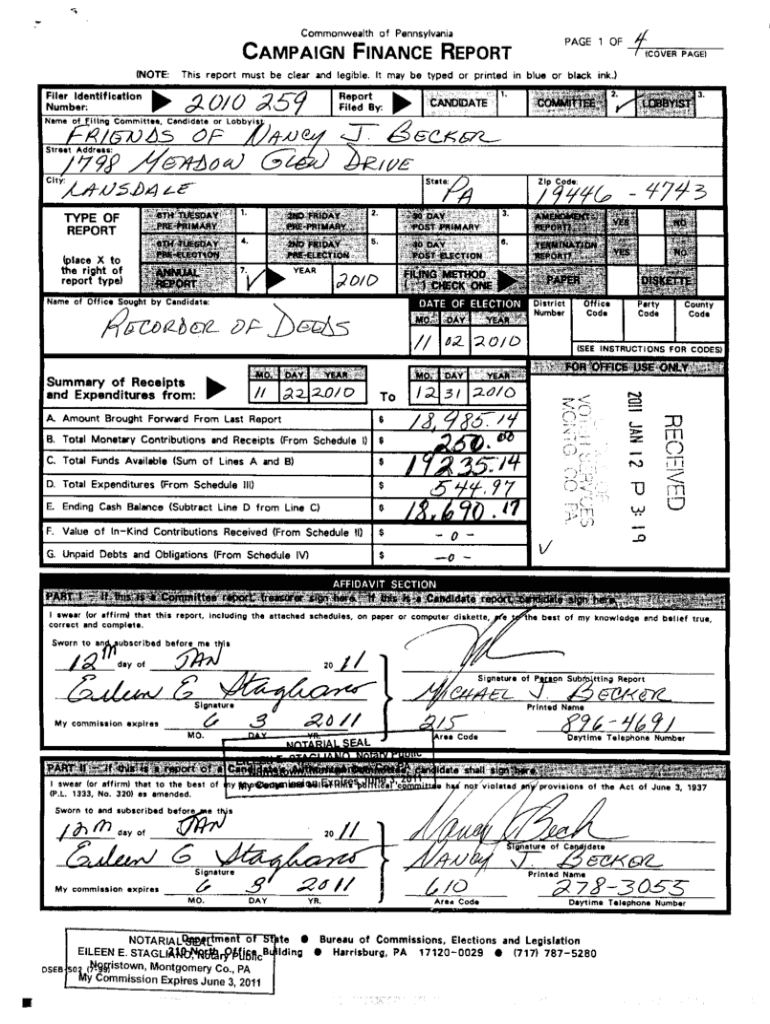 Commonwealth of Pennsylvania
CAMPAIGN FINANCE REPORT
PAGE 1 OF 4
(COVER PAGE)
(NOTE: This report must be clear and legible. It may be typed or printed in blue or black ink.)
Filer Identification Number: 2010 259
Report Filed By: CANDIDATE 1. COMMITTEE 2. ✓ LOBBYIST 3.
Name of Filing Committee, Candidate or Lobbyist:
FRIENDS OF NANCY J. BECKER
Street Address:
1798 MEADOW GLEN DRIVE
City: LANSDALE State: PA Zip Code: 19446 - 4743
TYPE OF REPORT
(place X to the right of report type)
6TH TUESDAY PRE-PRIMARY 1. 2ND FRIDAY PRE-PRIMARY 2. 30 DAY POST PRIMARY 3. AMENDMENT REPORT? YES NO
6TH TUESDAY PRE-ELECTION 4. 2ND FRIDAY PRE-ELECTION 5. 30 DAY POST ELECTION 6. TERMINATION REPORT? YES NO
ANNUAL REPORT 7. ✓ YEAR 2010 FILING METHOD ( ) CHECK ONE PAPER DISKETTE
Name of Office Sought by Candidate:
RECORDER OF DEEDS
DATE OF ELECTION
MO. DAY YEAR
11 02 2010
District Number Office Code Party Code County Code
(SEE INSTRUCTIONS FOR CODES)
Summary of Receipts and Expenditures from:
MO. DAY YEAR
11 22 2010
To
MO. DAY YEAR
12 31 2010
FOR OFFICE USE ONLY
A. Amount Brought Forward From Last Report $ 18,985.14
B. Total Monetary Contributions and Receipts (From Schedule I) $ 250.00
C. Total Funds Available (Sum of Lines A and B) $ 19235.14
D. Total Expenditures (From Schedule III) $ 544.97
E. Ending Cash Balance (Subtract Line D from Line C) $ 18,690.17
F. Value of In-Kind Contributions Received (From Schedule II) $ - 0 -
G. Unpaid Debts and Obligations (From Schedule IV) $ - 0 -
RECEIVED
2011 JAN 12 P 3:19
SERVICES
MONTG CO PA.
AFFIDAVIT SECTION
PART I - If this is a Committee report, treasurer sign here. If this is a Candidate report, candidate sign here.
I swear (or affirm) that this report, including the attached schedules, on paper or computer diskette, are to the best of my knowledge and belief true, correct and complete.
Sworn to and subscribed before me this
12th day of JAN 20 11
Signature of Person Submitting Report
Eileen E Stagliano
Signature
MICHAEL J. BECKER
Printed Name
My commission expires 6 3 2011
MO. DAY YR.
215 896-4691
Area Code Daytime Telephone Number
NOTARIAL SEAL
EILEEN E. STAGLIANO, Notary Public
My Commission Expires June 3, 2011
PART II - If this is a report of a Candidate shall sign here.
I swear (or affirm) that to the best of my political committee has not violated any provisions of the Act of June 3, 1937
(P.L. 1333, No. 320) as amended.
Sworn to and subscribed before me this
12th day of JAN 20 11
Nancy J Beck
Signature of Candidate
Eileen E Stagliano
Signature
NANCY J. BECKER
Printed Name
My commission expires 6 3 2011
MO. DAY YR.
610 278-3055
Area Code Daytime Telephone Number
Department of State ● Bureau of Commissions, Elections and Legislation
210 North Office Building ● Harrisburg, PA 17120-0029 ● (717) 787-5280
DSEB-502 (7-99)
NOTARIAL SEAL
EILEEN E. STAGLIANO, Notary Public
Norristown, Montgomery Co., PA
My Commission Expires June 3, 2011